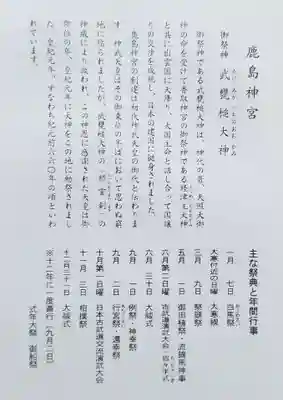 鹿島神宮
御祭神　武甕槌大神
御祭神である武甕槌大神は、神代の昔、天照大御
神の命を受けて香取神宮の御祭神である経津主大神
と共に出雲国に天降り、大国主命と話し合って国譲
りの交渉を成就し、日本の建国に挺身されました。
鹿島神宮の創建は初代神武天皇の御代と伝わりま
す。神武天皇はその御東征の半ばにおいて思わぬ窮
地に陥られましたが、武甕槌大神の「韴霊剣」の
神威により救われ、この神恩に感謝された天皇は御
即位の年、皇紀元年に大神をこの地に勅祭されまし
た。皇紀元年、すなわち紀元前六六〇年の頃といわ
れています。
主な祭典と年間行事
一月　七日　白馬祭
大寒付近の日曜　大寒禊
三月　九日　祭頭祭
五月　一日　御田植祭・流鏑馬神事
六月第二日曜
六月　三十日　大祓式
九月　一日　例祭・神幸祭
九月　二日　行宮祭・還幸祭
十月第一日曜　日本古武道交流演武大会
十一月二十三日　相撲祭
十二月三十一日　大祓式
※十二年に一度斎行（九月二日）
式年大祭　御船祭